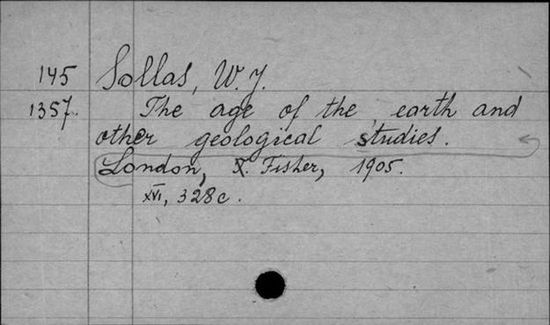 145 Sollas, W. J.
1357. The age of the earth and
other geological studies.
London, T. Fisher, 1905.
XVI, 328c.